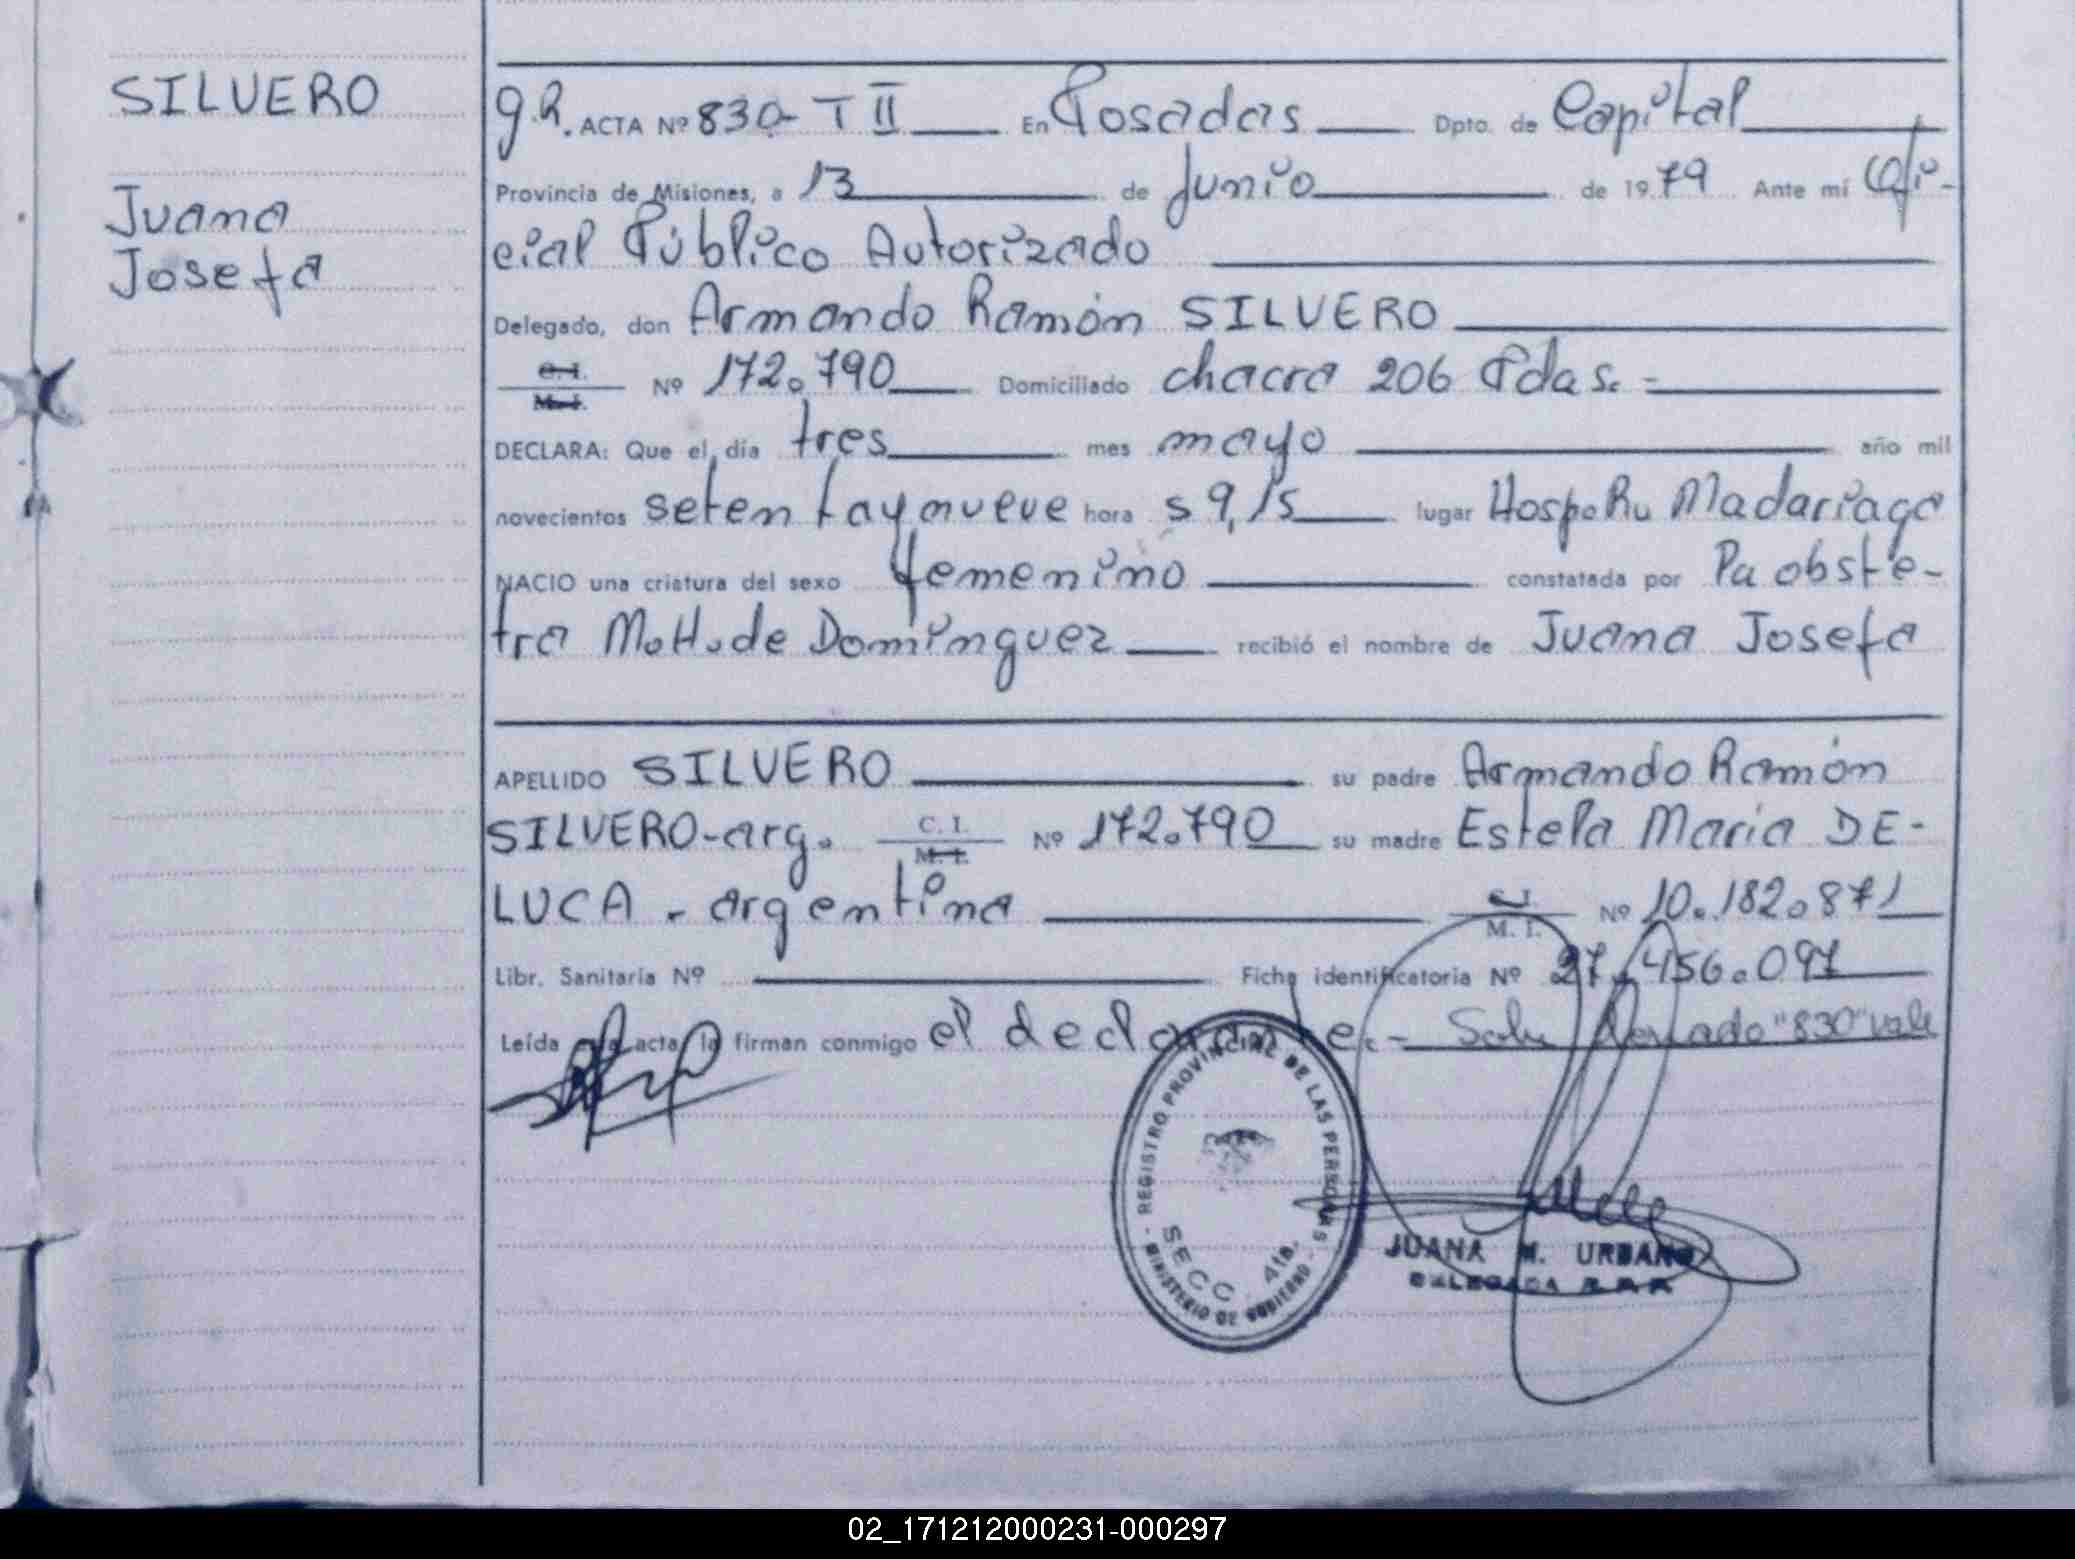 SILVERO
Juana
Josefa
g.h. ACTA Nº 830- T II En Posadas Dpto. de Capital
Provincia de Misiones, a 13 de Junio de 1979 Ante mí Ofi-
cial Público Autorizado
Delegado, don Armando Ramón SILVERO
C.I. M.I. Nº 172.790 Domiciliado chacra 206 Pdas.
DECLARA: Que el día tres mes mayo año mil
novecientos setentaynueve hora s 9,15 lugar Hosp. Madariaga
NACIO una criatura del sexo femenino constatada por la obste-
tra M.H. de Domínguez recibió el nombre de Juana Josefa
APELLIDO SILVERO su padre Armando Ramón
SILVERO-arg. C.I. M.I. Nº 172.790 su madre Estela María DE-
LUCA - argentina C.I. M.I. Nº 10.182.871
Libr. Sanitaria Nº Ficha identificatoria Nº 27.456.097
Leída acta la firman conmigo el declarante.- "830" vale
REGISTRO PROVINCIAL DE LAS PERSONAS
MINISTERIO DE GOBIERNO
SECC. 4ta.
JUANA M. URBANO
DELEGADA
02_171212000231-000297